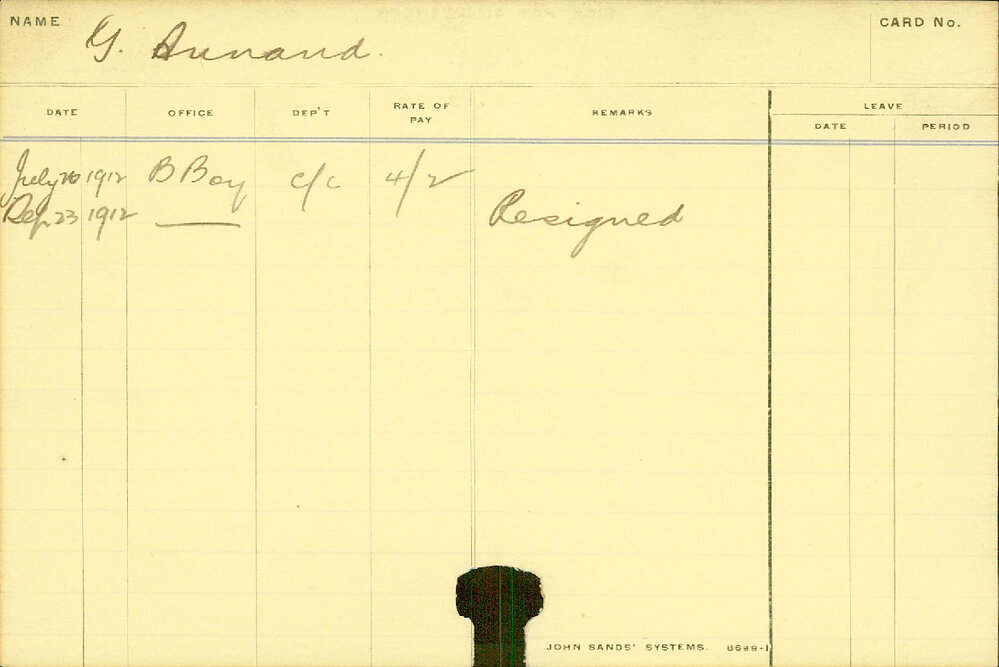 NAME G. Annand. CARD No.
DATE OFFICE DEP'T RATE OF PAY REMARKS LEAVE
DATE PERIOD
July 26 1912 B Boy c/c 4/2
Sep. 23 1912 — Resigned
JOHN SANDS' SYSTEMS. 8689-1